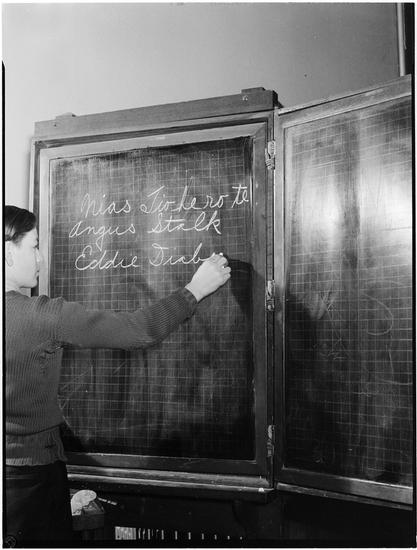 Nias Tiohero te
Angus Stalk
Eddie Diab